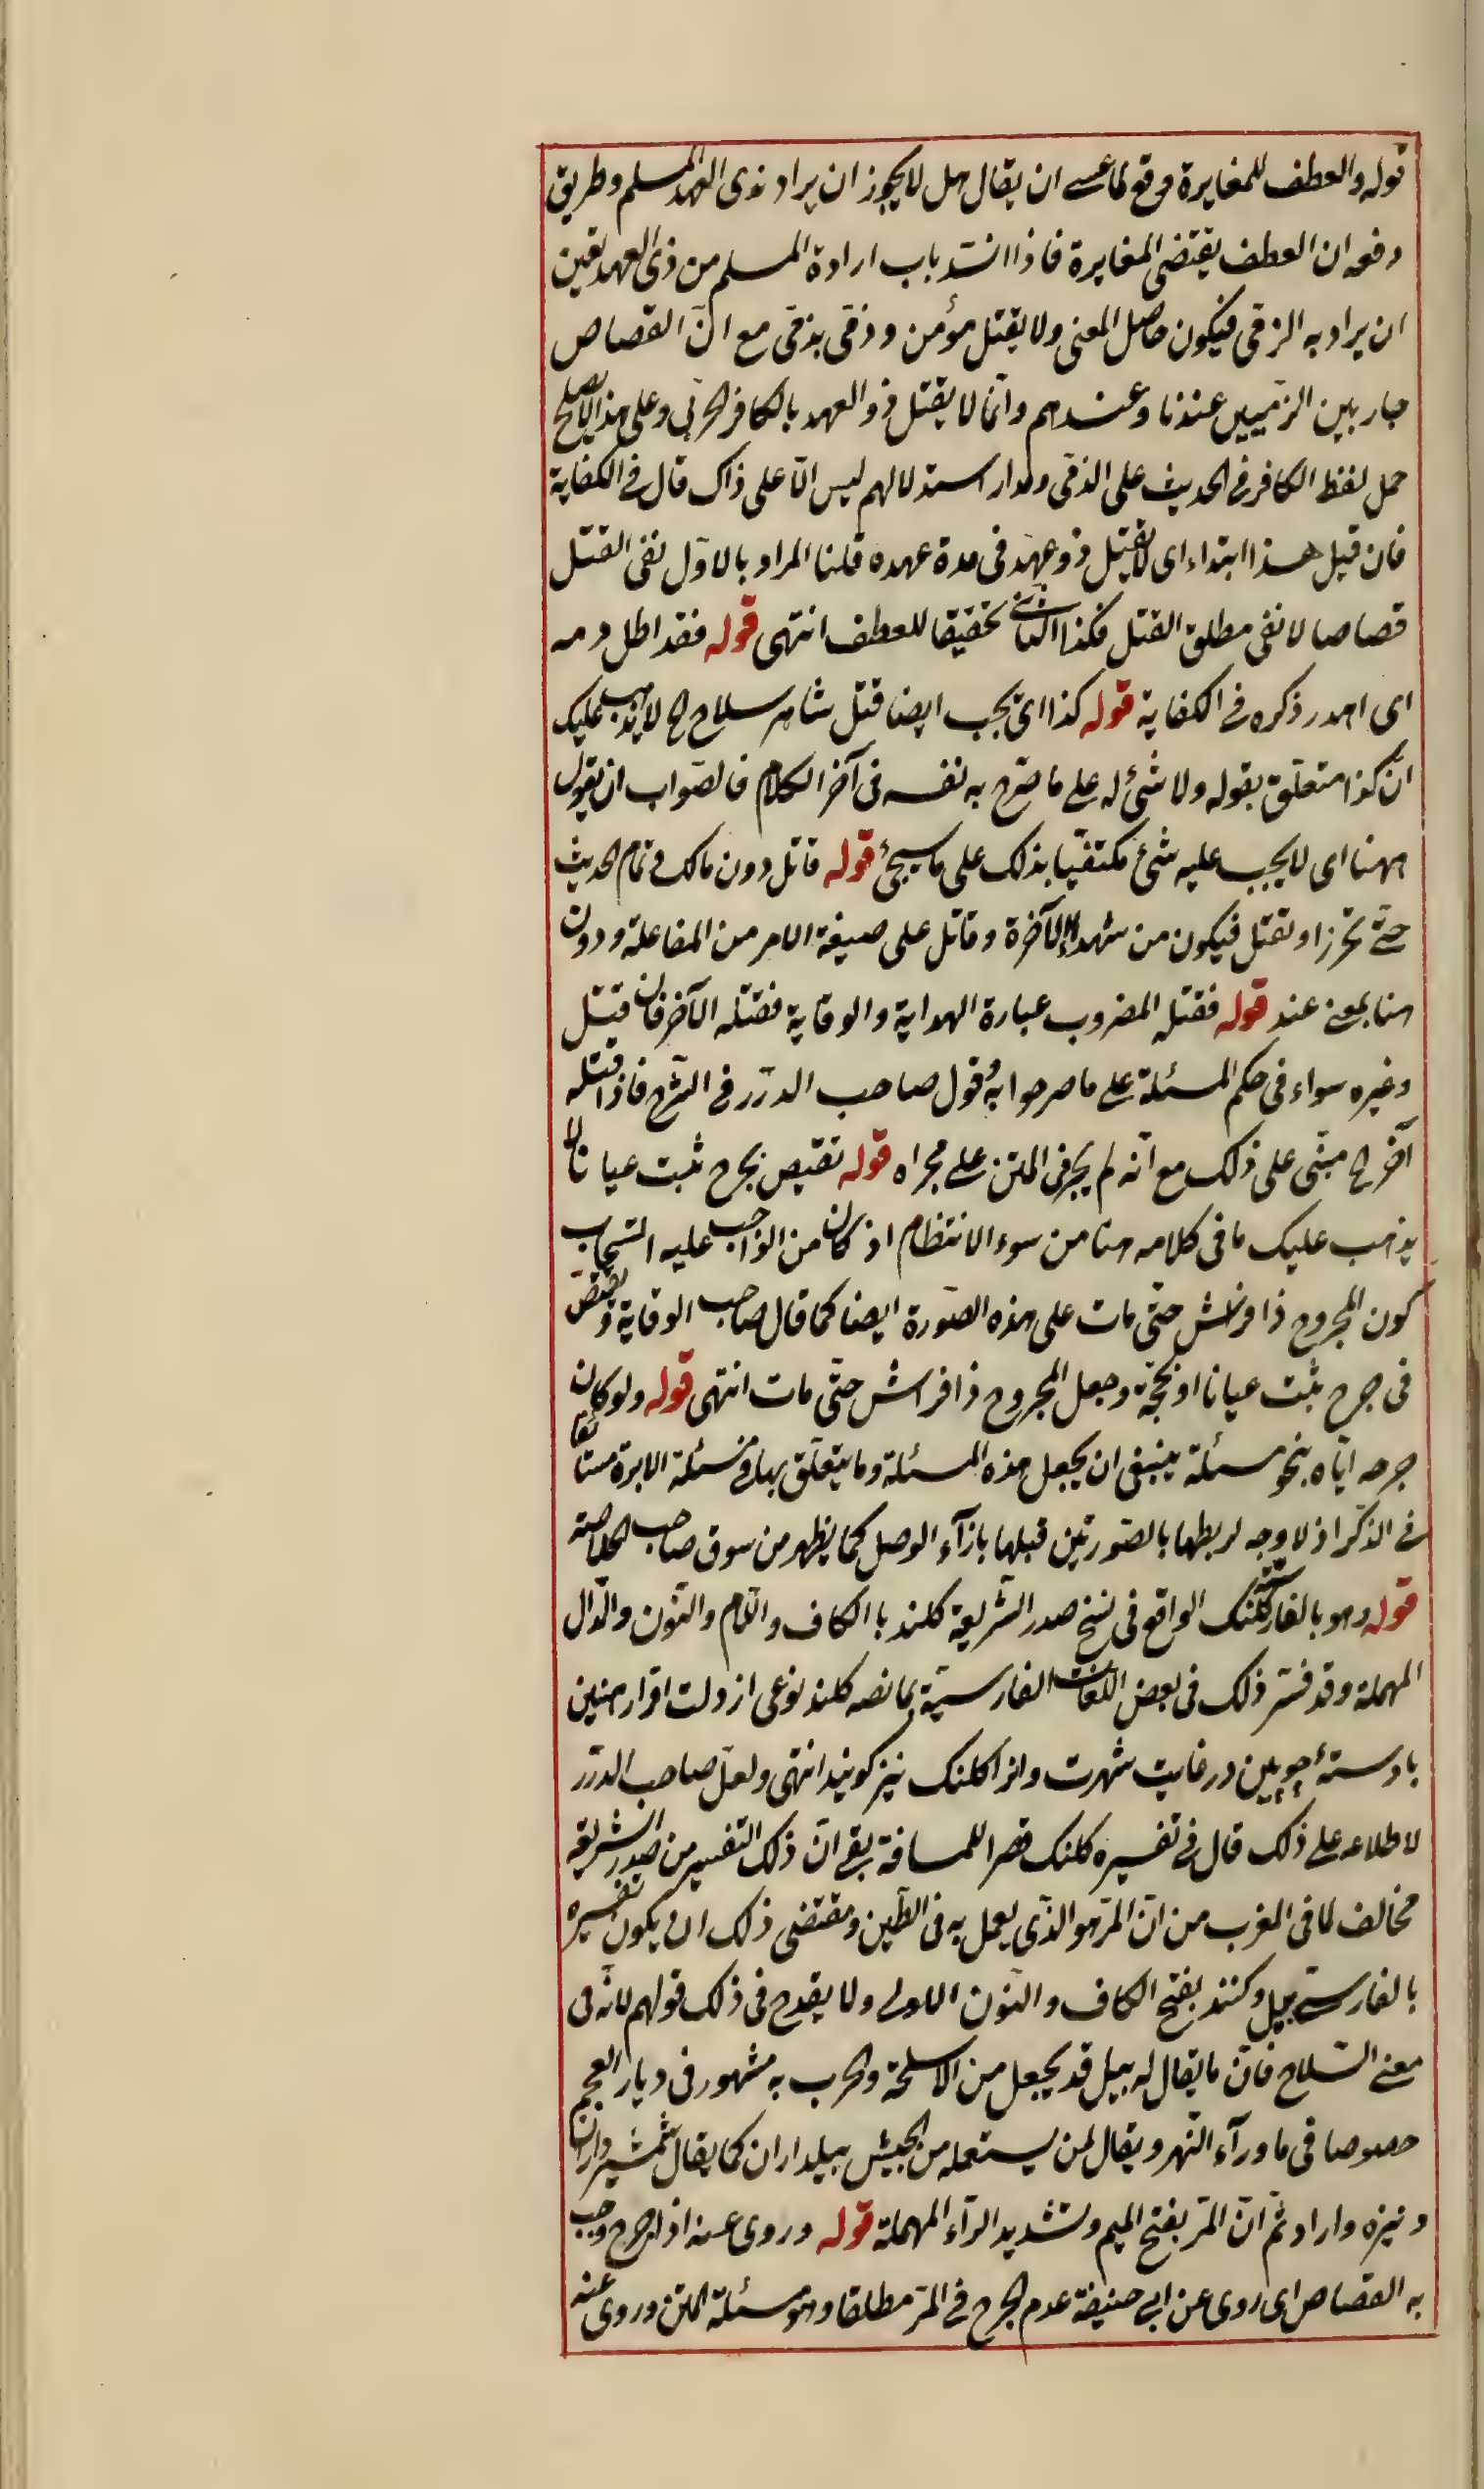 قوله والعطف للمغايرة دفع لما عسى ان يقال هل لا يجوز ان يراد بذى العهد المسلم وطريق
دفعه ان العطف يقتضى المغايرة فاذا انسد باب ارادة المسلم من ذى العهد تعين
ان يراد به الذمى فيكون حاصل المعنى ولا يقتل مؤمن وذمّى بذمّى مع انّ القصاص
جار بين الذميين عندنا وعندهم وانّما لا يقتل ذو العهد بالكافر الحربى وعلى هذا لا يصلح
حمل لفظ الكافر فى الحديث على الذمّى ومدار استدلالهم ليس الّا على ذاك قال فى الكفاية
فان قيل هذا ابتداء اى لا يقتل ذو عهد فى مدة عهده قلنا المراد بالاوّل نفى القتل
قصاصا لا نفى مطلق القتل فكذا الثانى تحقيقا للعطف انتهى قوله فقد اطل دمه
اى اهدر ذكره فى الكفاية قوله كذا اى يجب ايضا قتل شاهر سلاح الخ لا يذهب عليك
انّ كذا متعلّق بقوله ولا شئ له على ما صرّح به نفسه فى آخر الكلام فالصّواب ان يقول
ههنا اى لا يجب عليه شئ مكتفيا بذلك على ما سيجئ قوله قاتل دون مالك وتمام الحديث
حتّى تحرز او تقتل فيكون من شهداء الآخرة وقاتل على صيغة الامر من المفاعلة ودون
هنا بمعنى عند قوله فقتله المضروب عبارة الهداية والوقاية فقتله الآخر فان قتل
وغيره سواء فى حكم المسئلة على ما صرحوا به وقول صاحب الدّرر فى الشّرح فاذا قتله
آخر الخ مبنى على ذلك مع انّه لم يجر فى المتن على مجراه قوله تقتيص بجرح ثبت عيانا لا
يذهب عليك ما فى كلامه هنا من سوء الانتظام اذ كان من الواجب عليه
كون المجروح ذا فراش حتّى مات على هذه الصّورة ايضا كما قال صاحب الوقاية ويقتص
فى جرح ثبت عيانا او بحجّة وجعل المجروح ذا فراش حتّى مات انتهى قوله ولو كان
جرحه ايّاه بنحو مسئلة ينبغى ان يجعل هذه المسئلة وما يتعلّق بها ومسئلة الابرة مستأنفا
فى الذّكر اذ لا وجه لربطها بالصّورتين قبلها بازآء الوصل كما يظهر من سوق صاحب الخلاصة
قوله وهو بالفارسيّة كلنك الواقع فى نسخ صدر الشّريعة كلند بالكاف واللّام والنّون والدّال
المهملة وقد فسّر ذلك فى بعض اللغات الفارسيّة بما نصه كلند نوعى از دولت افزار هنين
با دستۀ چوبين در غايت شهرت وانرا كلنك نيز كويند انتهى ولعلّ صاحب الدّرر
لاطلاعه على ذلك قال فى تفسيره كلنك قصرا للمسافة بقى انّ ذلك التفسير من صدر الشّريعة
مخالف لما فى المغرب من انّ المرّ هو الّذى يعمل به فى الطّين ومقتضى ذلك ان يكون تفسيره
بالفارسيّة بيل وكنند بفتح الكاف والنّون الاولى ولا يقدح فى ذلك قولهم لانّه فى
معنى السّلاح فانّ ما يقال له بيل قد يجعل من الاسلحة والحرب به مشهور فى ديار العجم
خصوصا فى ما ورآء النّهر ويقال لمن يستعمله من الجيش بيلداران كما يقال شمشيرداران
ونيزه واراد ثم انّ المرّ بفتح الميم وتشديد الرّآء المهملة قوله وروى عنه اذا جرح وجب
به القصاص اى روى عن ابى حنيفة عدم الجرح فى المرّ مطلقا وهو مسئلة المتن وروى عنه